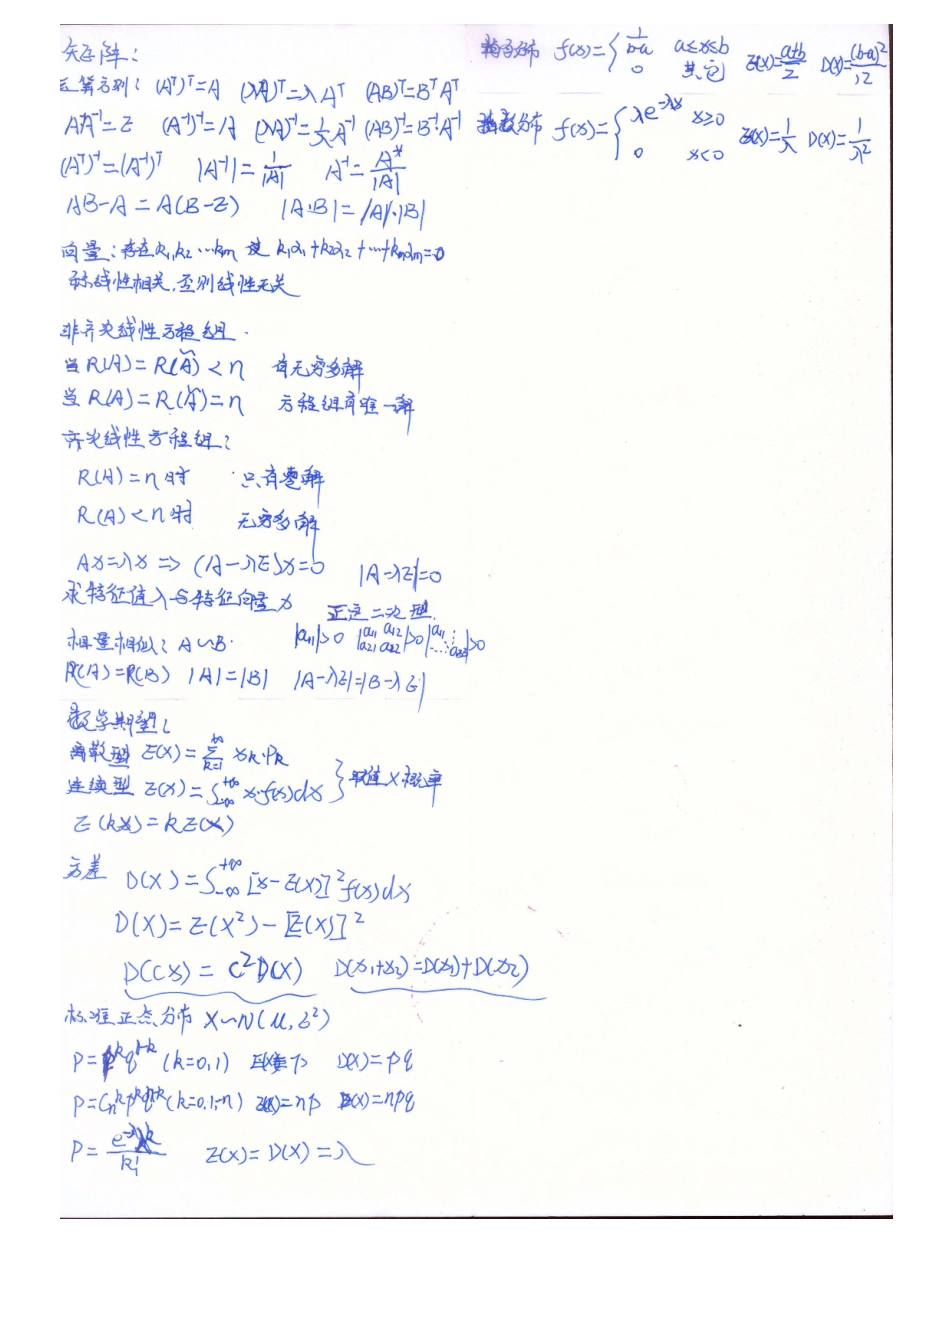 矩阵：
运算方则：(Aᵀ)ᵀ=A (λA)ᵀ=λAᵀ (AB)ᵀ=BᵀAᵀ
AA⁻¹=E (A⁻¹)⁻¹=A (λA)⁻¹=1/λ A⁻¹ (AB)⁻¹=B⁻¹A⁻¹
(Aᵀ)⁻¹=(A⁻¹)ᵀ |A⁻¹|=1/|A| A⁻¹=A*/|A|
AB-A=A(B-E) |A·B|=|A|·|B|
向量：存在k₁,k₂…km 使 k₁α₁+k₂α₂+…+kmαm=0
称线性相关,否则线性无关
非齐次线性方程组.
当R(A)=R(Ã)<n 有无穷多解
当R(A)=R(Ã)=n 方程组有唯一解
齐次线性方程组：
R(A)=n时 只有零解
R(A)<n时 无穷多解
Ax=λx => (A-λE)x=0 |A-λE|=0
求特征值λ与特征向量x
正定二次型.
|a₁₁|>0 |a₁₁ a₁₂ a₂₁ a₂₂|>0 |a₁₁ … a₃₃|>0
相量相似：A∽B.
R(A)=R(B) |A|=|B| |A-λE|=|B-λE|
数学期望：
离散型 E(X)=∑(k=1→∞) xk·Pk
连续型 E(X)=∫₋∞⁺∞ x·f(x)dx } 取值×概率
E(kx)=kE(X)
方差 D(X)=∫₋∞⁺∞[x-E(X)]²f(x)dx
D(X)=E(X²)-[E(X)]²
D(CX)=C²D(X) D(x₁+x₂)=D(x₁)+D(x₂)
标准正态分布 X∽N(μ,δ²)
P=pᵏq¹⁻ᵏ(k=0,1) E(X)=p D(X)=pq
P=Cₙᵏpᵏqⁿ⁻ᵏ(k=0.1…n) E(X)=np D(X)=npq
P=e^(-λ)λᵏ/k! E(X)=D(X)=λ
均匀分布 f(x)={1/(b-a) a≤x≤b 0 其它 E(X)=(a+b)/2 D(X)=(b-a)²/12
指数分布 f(x)={λe^(-λx) x≥0 0 x<0 E(X)=1/λ D(X)=1/λ²